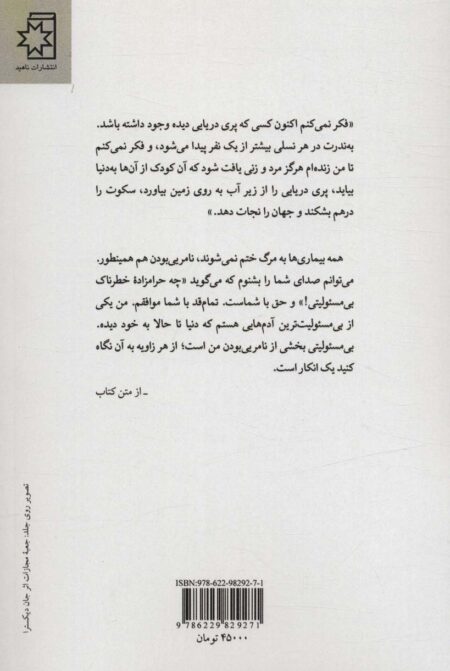 انتشارات ناهید
«فکر نمی‌کنم اکنون کسی که پری دریایی دیده وجود داشته باشد.
به‌ندرت در هر نسلی بیشتر از یک نفر پیدا می‌شود، و فکر نمی‌کنم
تا من زنده‌ام هرگز مرد و زنی یافت شود که آن کودک از آن‌ها به‌دنیا
بیاید، پری دریایی را از زیر آب به روی زمین بیاورد، سکوت را
درهم بشکند و جهان را نجات دهد.»
همه بیماری‌ها به مرگ ختم نمی‌شوند، نامریی‌بودن هم همینطور.
می‌توانم صدای شما را بشنوم که می‌گوید «چه حرامزادهٔ خطرناک
بی‌مسئولیتی!» و حق با شماست. تمام‌قد با شما موافقم. من یکی
از بی‌مسئولیت‌ترین آدم‌هایی هستم که دنیا تا حالا به خود دیده.
بی‌مسئولیتی بخشی از نامریی‌بودن من است؛ از هر زاویه به آن نگاه
کنید یک انکار است.
ـ از متن کتاب
تصویر روی جلد: جعبهٔ مجازات اثر جان دیکسترا
ISBN:978-622-98292-7-1
9 786229 829271
۴۵۰۰۰ تومان